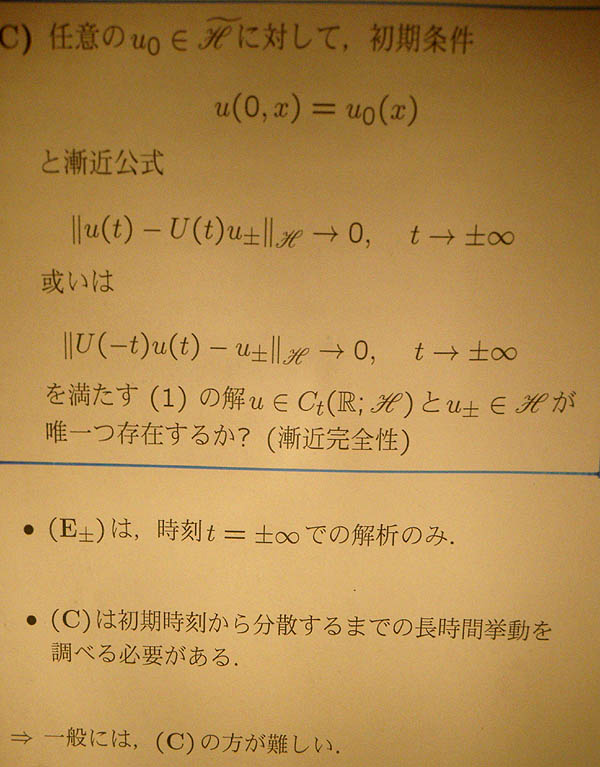 C) 任意の u₀ ∈ ℋ̃ に対して, 初期条件
u(0, x) = u₀(x)
と漸近公式
‖u(t) − U(t)u±‖ℋ → 0, t → ±∞
或いは
‖U(−t)u(t) − u±‖ℋ → 0, t → ±∞
を満たす (1) の解 u ∈ Cₜ(ℝ; ℋ) と u± ∈ ℋ が
唯一つ存在するか? (漸近完全性)
• (E±) は, 時刻 t = ±∞ での解析のみ.
• (C) は初期時刻から分散するまでの長時間挙動を
調べる必要がある.
⇒ 一般には, (C) の方が難しい.